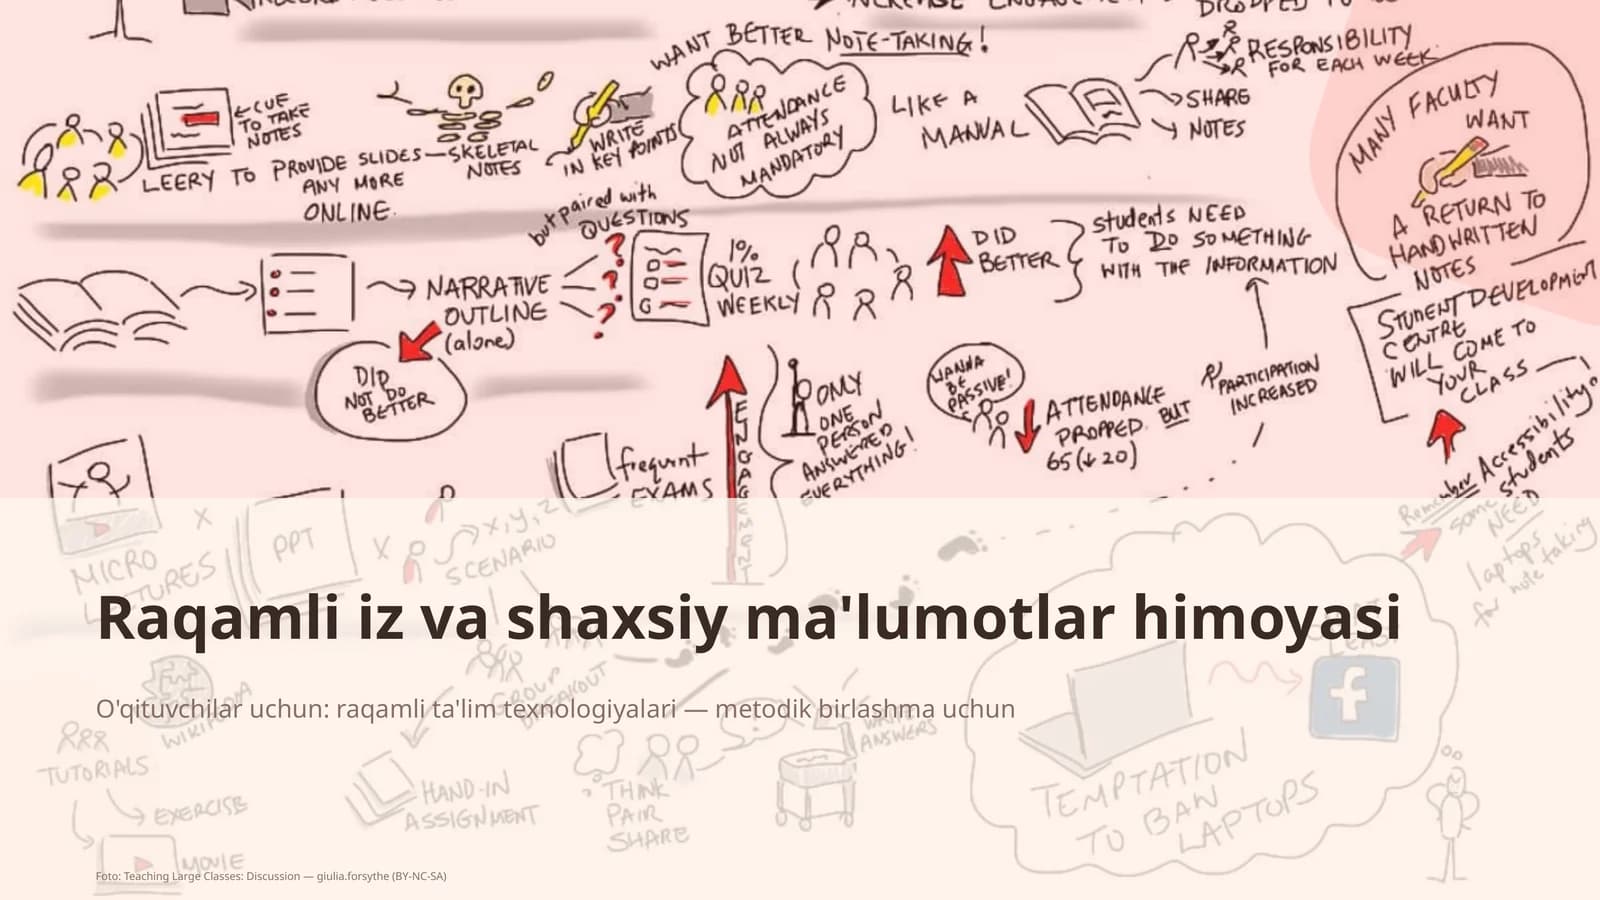 WANT BETTER NOTE-TAKING!
RESPONSIBILITY
FOR EACH WEEK
←CUE
TO TAKE
NOTES
LEERY TO PROVIDE SLIDES—SKELETAL
NOTES
ANY MORE
ONLINE.
WRITE
IN KEY POINTS
ATTENDANCE
NOT ALWAYS
MANDATORY
LIKE A
MANUAL
SHARE
NOTES
MANY FACULTY
WANT
A RETURN TO
HANDWRITTEN
NOTES
but paired with
QUESTIONS
NARRATIVE
OUTLINE
(alone)
DID
NOT DO
BETTER
1%
QUIZ
WEEKLY
DID
BETTER
students NEED
TO DO SOMETHING
WITH THE INFORMATION
STUDENT DEVELOPMENT
CENTRE
WILL COME TO
YOUR
CLASS
frequent
EXAMS
ENGAGEMENT
ONLY
ONE
PERSON
ANSWERED
EVERYTHING!
WANNA
BE
PASSIVE!
ATTENDANCE
DROPPED. BUT
65 (↓20)
PARTICIPATION
INCREASED
Remember Accessibility
some students
NEED
laptops
for note taking
MICRO
LECTURES
X
PPT
X
x,y,z
SCENARIO
Raqamli iz va shaxsiy ma'lumotlar himoyasi
O'qituvchilar uchun: raqamli ta'lim texnologiyalari — metodik birlashma uchun
WIKIPEDIA
GROUP
BREAKOUT
TUTORIALS
EXERCISE
MOVIE
HAND-IN
ASSIGNMENT
THINK
PAIR
SHARE
WRITE
ANSWERS
f
TEMPTATION
TO BAN
LAPTOPS
Foto: Teaching Large Classes: Discussion — giulia.forsythe (BY-NC-SA)